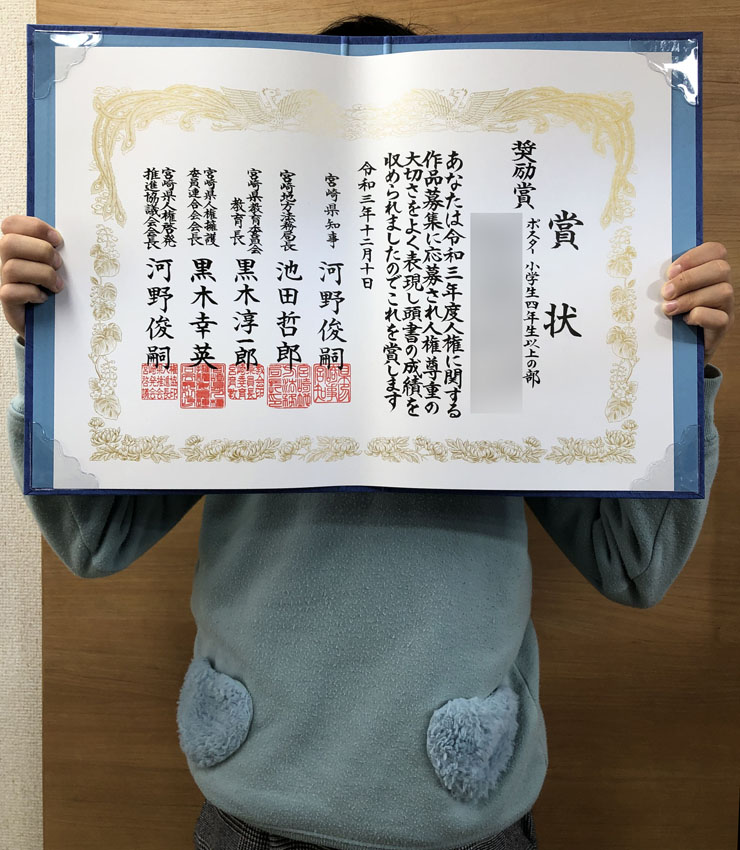 賞状
奨励賞
ポスター 小学生四年生以上の部
あなたは令和三年度人権に関する
作品募集に応募され人権尊重の
大切さをよく表現し頭書の成績を
収められましたのでこれを賞します
令和三年十二月十日
宮崎県知事 河野俊嗣
宮崎地方法務局長 池田哲郎
宮崎県教育委員会
教育長 黒木淳一郎
宮崎県人権擁護
委員連合会会長 黒木幸英
宮崎県人権啓発
推進協議会会長 河野俊嗣